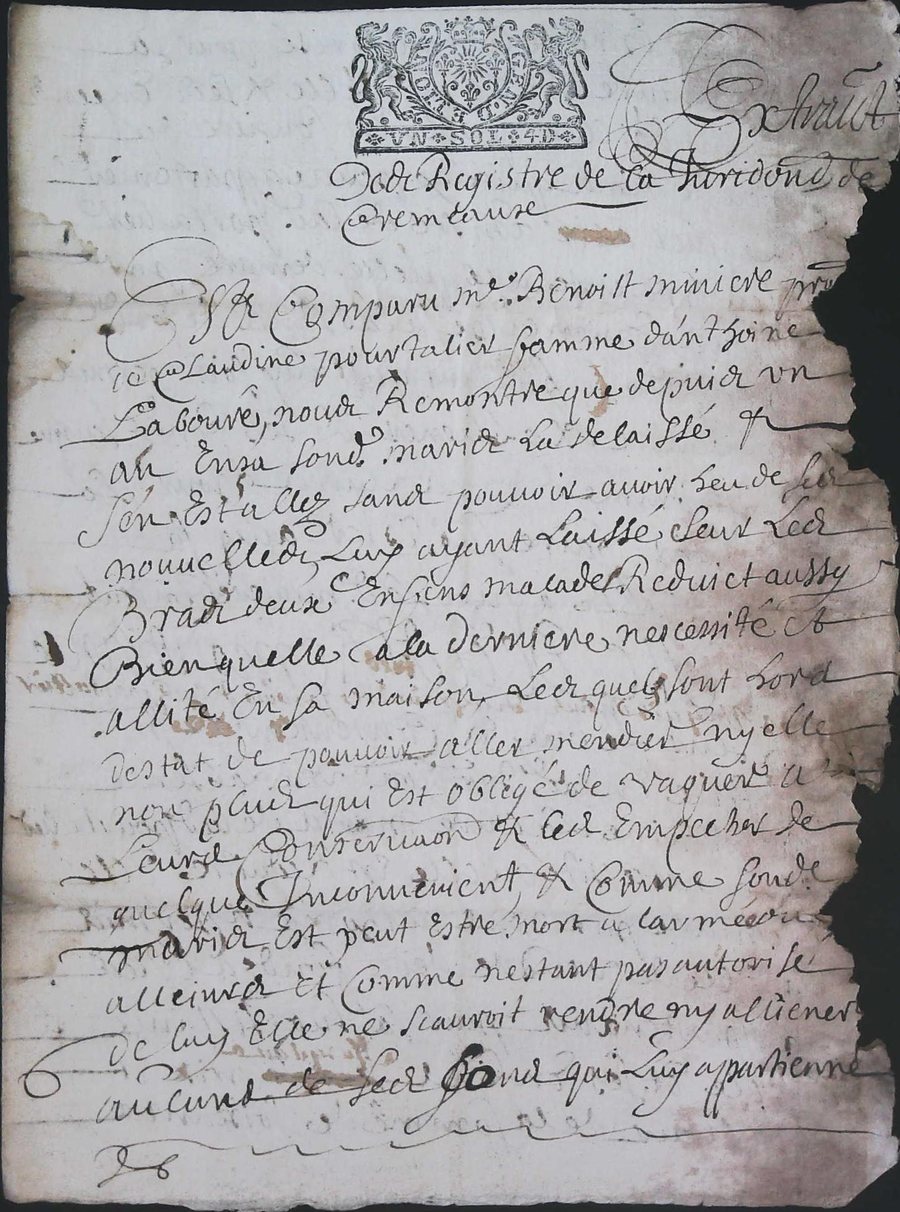 GEN.D ETION
VN SOL 4D
Extraict
Dedz Registre de la Juridond de
Cremeaux
Est Comparu me. Benoist miniere pr
de Claudine pourtalier famme d'anthoine
Laboure, nouds Remontre que depuids un
an Ença sondt marids La delaissé &
s'en Est allez sands pouvoir avoir heu de seds
nouvelleds, Luy ayant Laissé sleur Leds
Brads deux Enfens malades Reduict aussy
Bien quelle a la derniere nescessité et
allité En sa maison, Leds quels sont hord
destat de pouvoir aller mendier ny elle
non pluds qui Est obligé de vaquer a
Leurd Conservaon & leds Empecher de
quelque Inconvenient, & Comme sondt
marids Est peut Estre mort a larmée ou
allieurds Et Comme nestant pas autorisé
de luy Elle ne scauroit vendre ny alliener
aucund de seds fond qui Luy appartienne